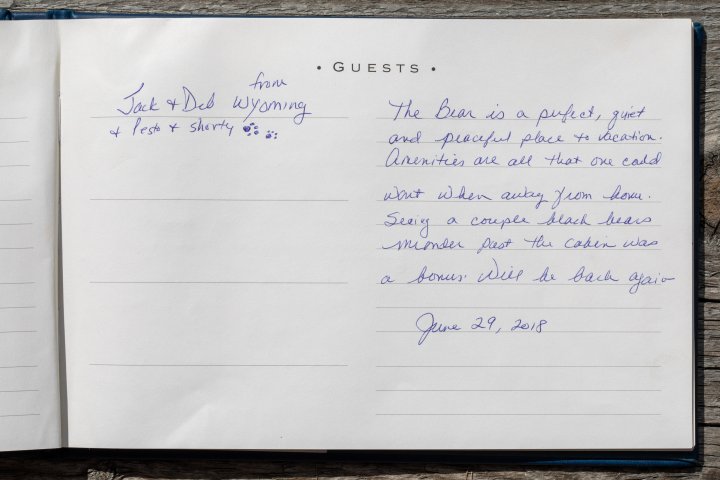 • GUESTS •
from
Jack + Deb Wyoming
+ Pesto + Shorty
The Bear is a perfect, quiet
and peaceful place to vacation.
Amenities are all that one could
want when away from home.
Seeing a couple black bears
meander past the cabin was
a bonus. Will be back again
June 29, 2018